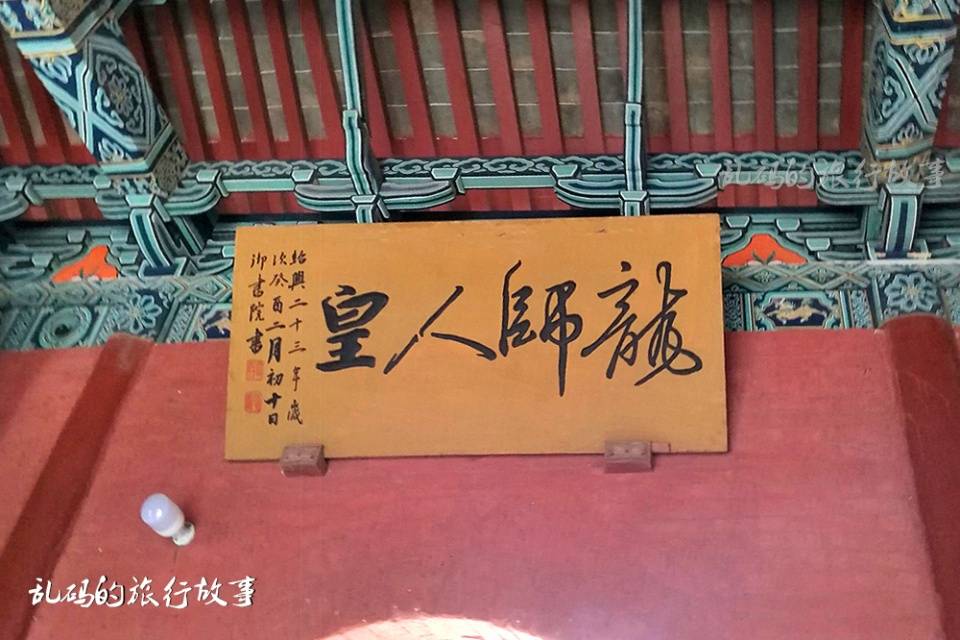 龍師人皇
紹興二十三年歲
次癸酉二月初十日
御書院書
乱码的旅行故事
乱码的旅行故事